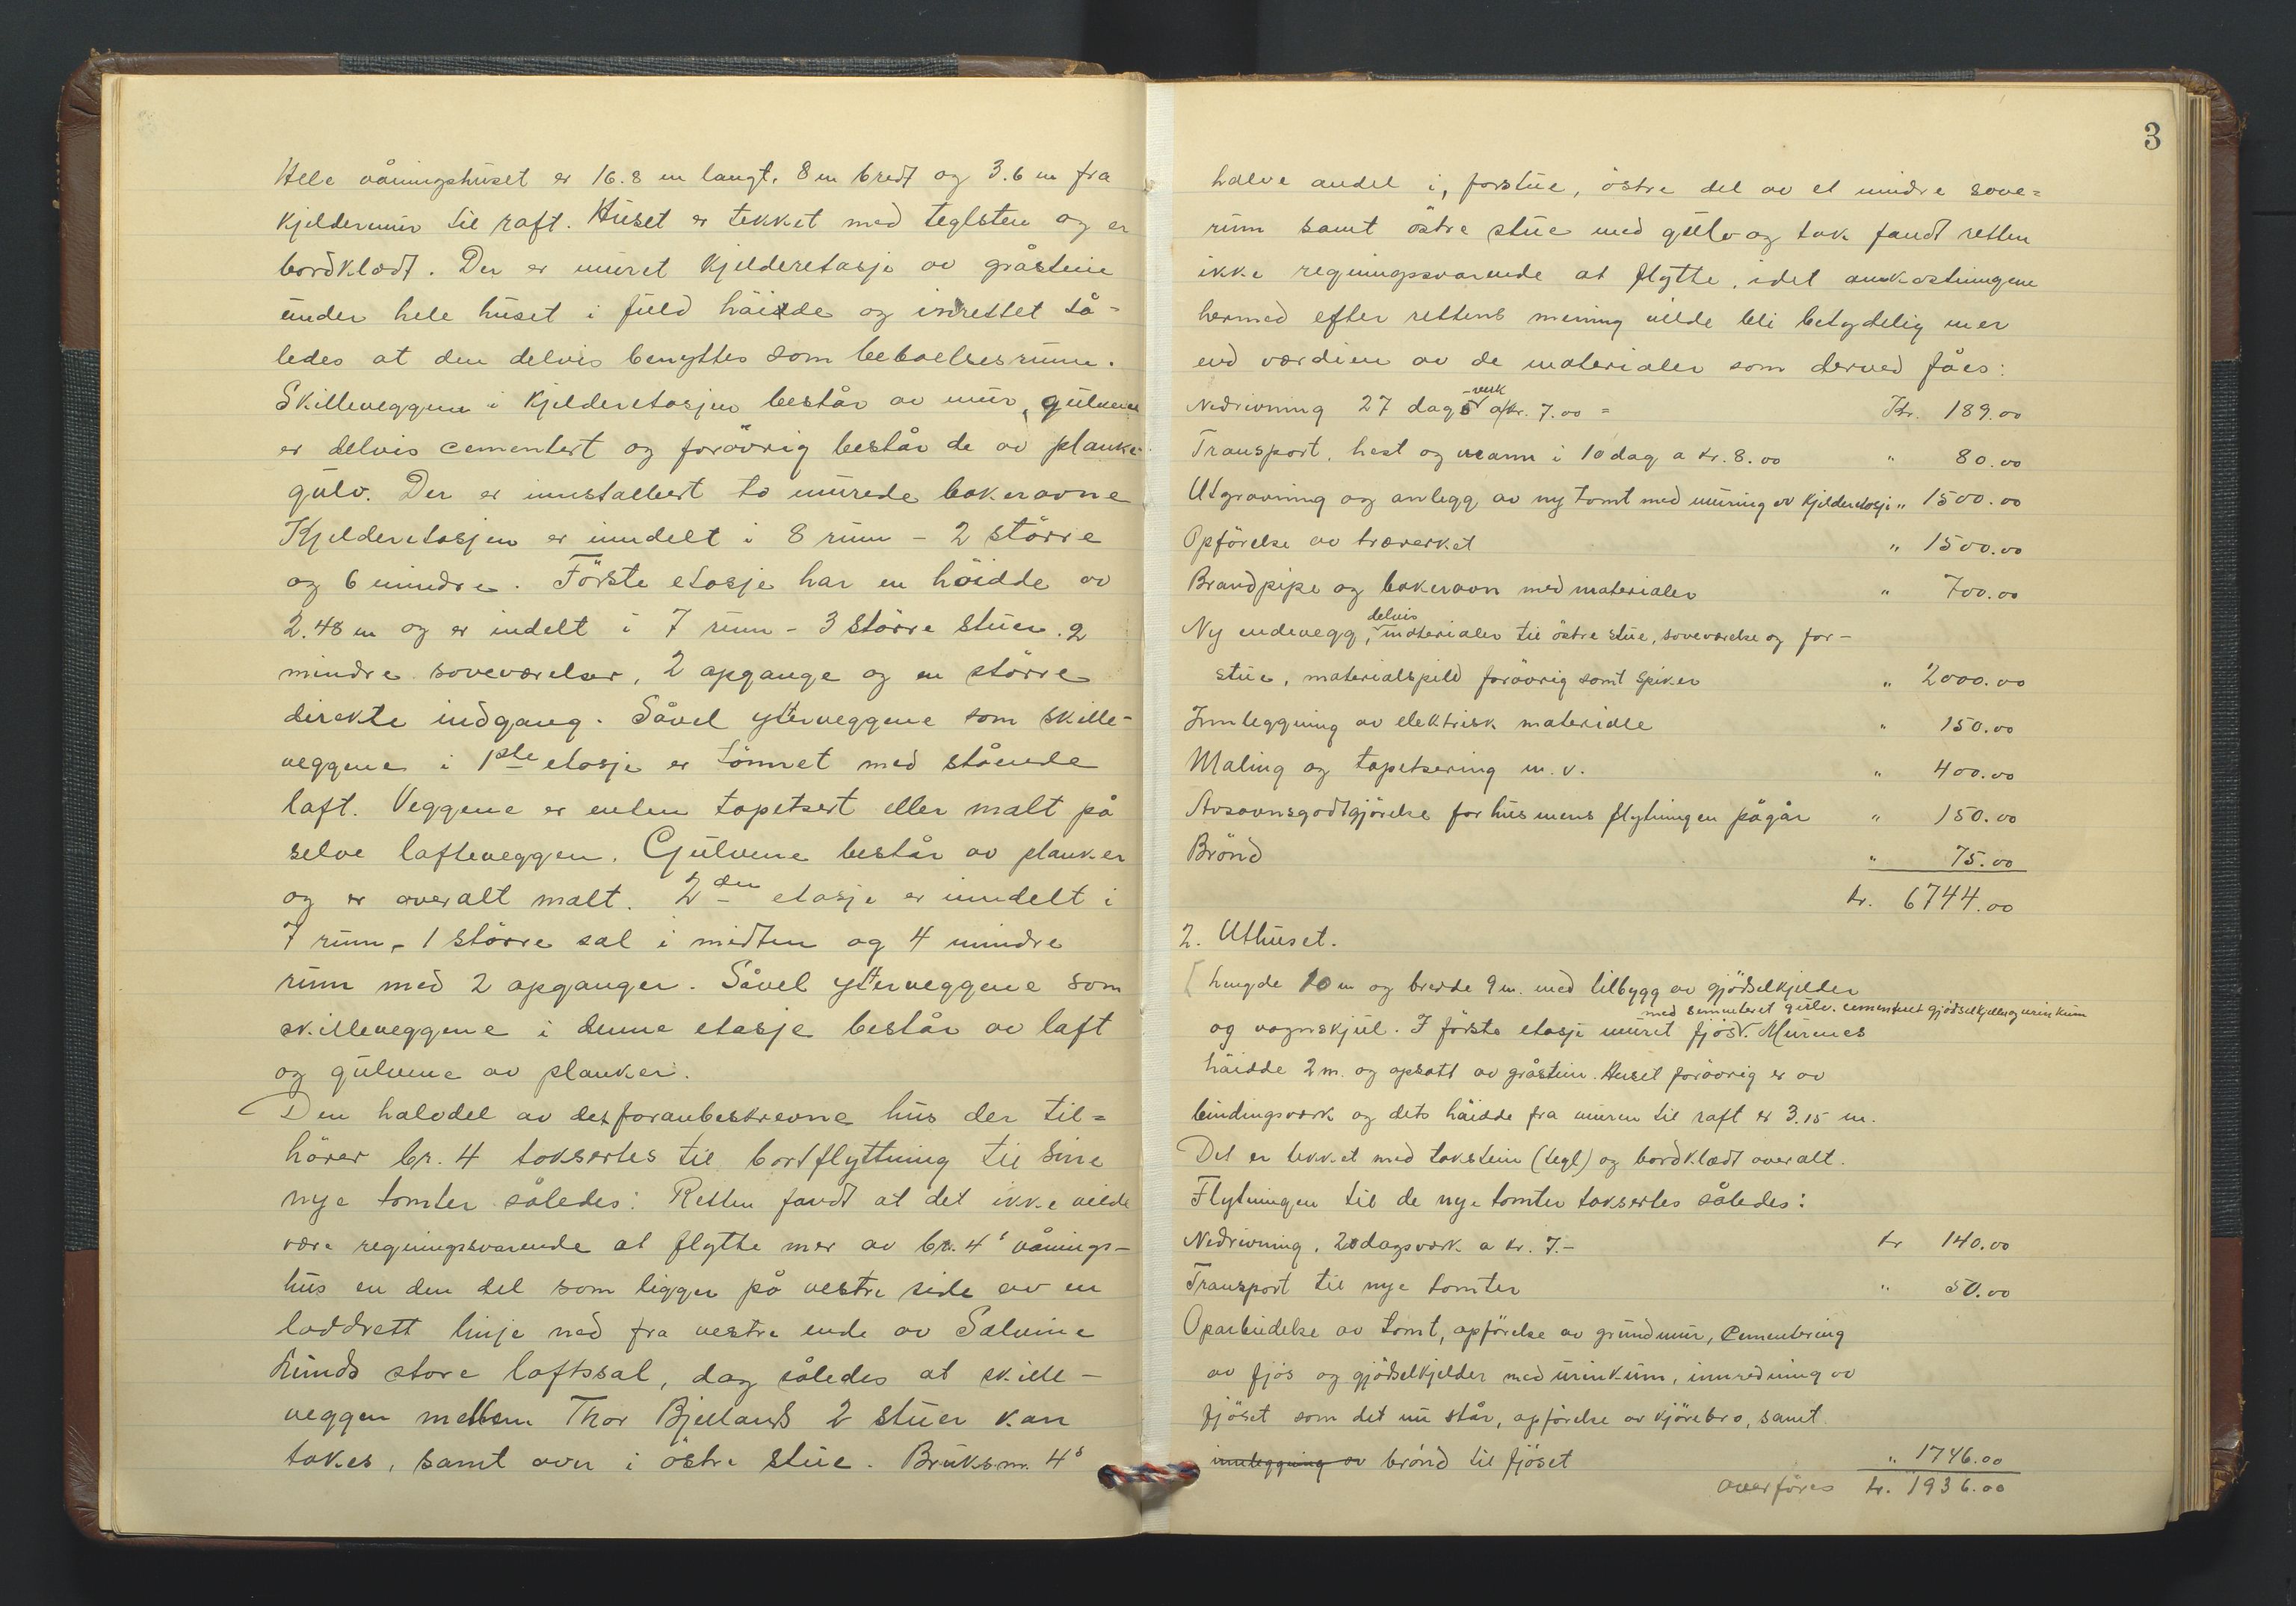 Hele våningshuset er 16.8 m langt, 8 m bredt og 3.6 m fra
kjeldermur til raft. Huset er tekket med teglsten og er
bordklædt. Der er muret kjelderetasje av gråstein
under hele huset i fuld høidde og inrettet så-
ledes at den delvis benyttes som beboelsesrum.
Skilleveggene i kjelderetasjen består av mur, gulvene
er delvis cementert og forøvrig består de av planke-
gulv. Der er innstallert to murede bakerovne
Kjelderetasjen er inndelt i 8 rum - 2 större
og 6 mindre. Förste etasje har en höidde av
2.48 m og er indelt i 7 rum - 3 större stuer. 2
mindre soveværelser, 2 opgange og en större
direkte indgang. Såvel ytterveggene som skille-
veggene i 1ste etasje er tömret med stående
laft. Veggene er enten tapetsert eller malt på
selve lafteveggen. Gulvene består av planker
og er overalt malt. 2den etasje er inndelt i
7 rum, 1 större sal i midten og 4 mindre
rum med 2 opganger. Såvel ytterveggene som
skilleveggene i denne etasje består av laft
og gulvene av planker.
Den halvdel av det foranbeskrevne hus der til=
hörer br. 4 taksertes til bortflyttning til sine
nye tomter således: Retten fandt at det ikke vilde
være regningsvarende at flytte mer av br. 4s vånings-
hus en den del som ligger på vestre side av en
loddrett linje ned fra vestre ende av Salvine
Lunds store loftssal, dog således at skille-
veggen mellem Thor Bjellands 2 stuer kan
takes, samt over i östre stue. Bruksnr. 4s
3
halve andel i, forstue, östre del av et mindre sove=
rum samt östre stue med gulv og tak fandt retten
ikke regningsvarende at flytte, idet omkostningene
hermed efter rettens mening vilde bli betydelig mer
end værdien av de materialer som derved fåes:
Nedrivning 27 dagsverk a kr. 7.00 = Kr. 189.00
Transport, hest og mann i 10 dag a kr. 8.00 " 80.00
Utgravning og anlegg av ny tomt med muring av kjelderetasje " 1500.00
Opförelse av træverket " 1500.00
Brandpipe og bakerovn med materialer " 700.00
Ny endevegg, delvis materialer til östre stue, soveværelse og for-
stue, materialspild forövrig samt spiker " 2000.00
Innleggning av elektrisk materiale " 150.00
Maling og tapetsering m.v. " 400.00
Avsavnsgodtgjörelse for hus mens flytningen pågår " 150.00
Brönd " 75.00
kr. 6744.00
2. Uthuset.
Lengde 10 m og bredde 9 m. med tilbygg av gjödselkjelder
med sementeret gulv. cementeret gjödselkjeller og urinkum
og vognskjul. I förste etasje muret fjös. Murenes
höidde 2 m. og opsatt av gråstein. Huset forövrig er av
bindingsværk og dets höidde fra muren til raft er 3.15 m.
Det er tekket med takstein (tegl) og bordklædt overalt.
Flytningen til de nye tomter taksertes således:
Nedrivning, 20 dagsverk a kr. 7.- kr 140.00
Transport til nye tomter " 50.00
Oparbeidelse av tomt, opförelse av grundmur, Cementering
av fjös og gjödselkjelder med urinkum, innredning av
fjöset som det nu står, opförelse av kjörebro, samt
innleggning av brönd til fjöset " 1746.00
overföres kr. 1936.00